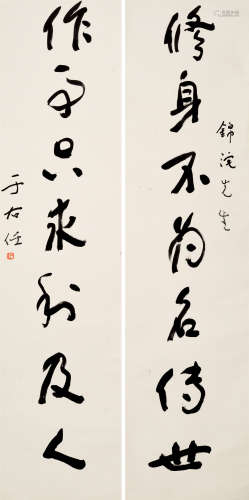 修身不为名传世
錦浣先生
作事只求利及人
于右任